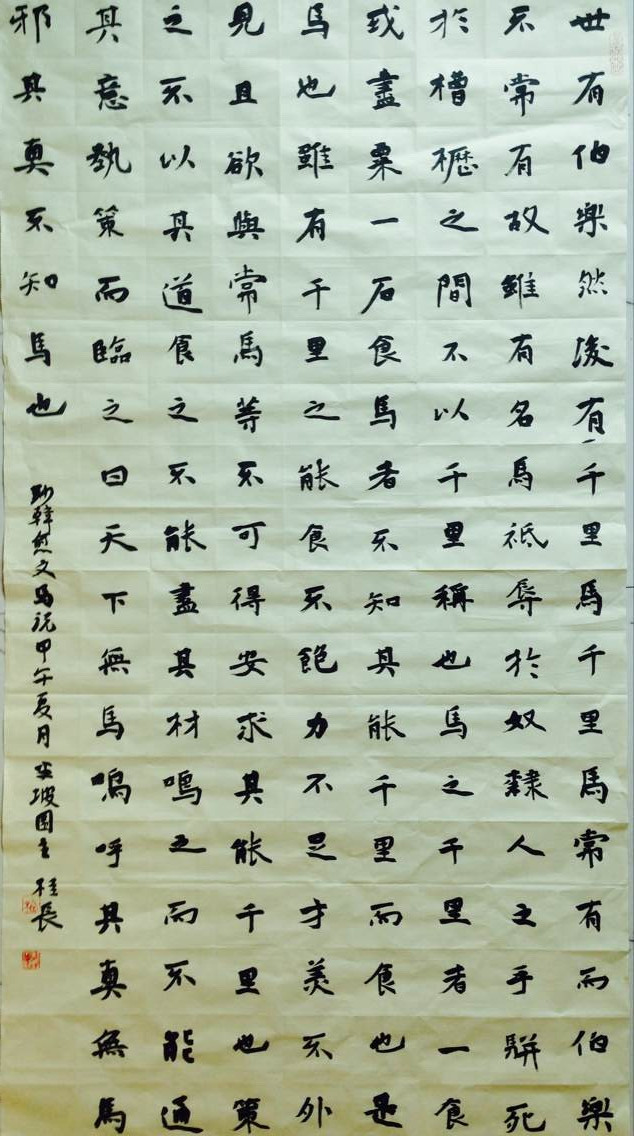 世有伯樂然後有千里馬千里馬常有而伯樂
不常有故雖有名馬祗辱於奴隸人之手駢死
於槽櫪之間不以千里稱也馬之千里者一食
或盡粟一石食馬者不知其能千里而食也是
馬也雖有千里之能食不飽力不足才美不外
見且欲與常馬等不可得安求其能千里也策
之不以其道食之不能盡其材鳴之而不能通
其意執策而臨之曰天下無馬嗚呼其真無馬
邪其真不知馬也
韓愈文馬說甲午夏月坡園主桂長